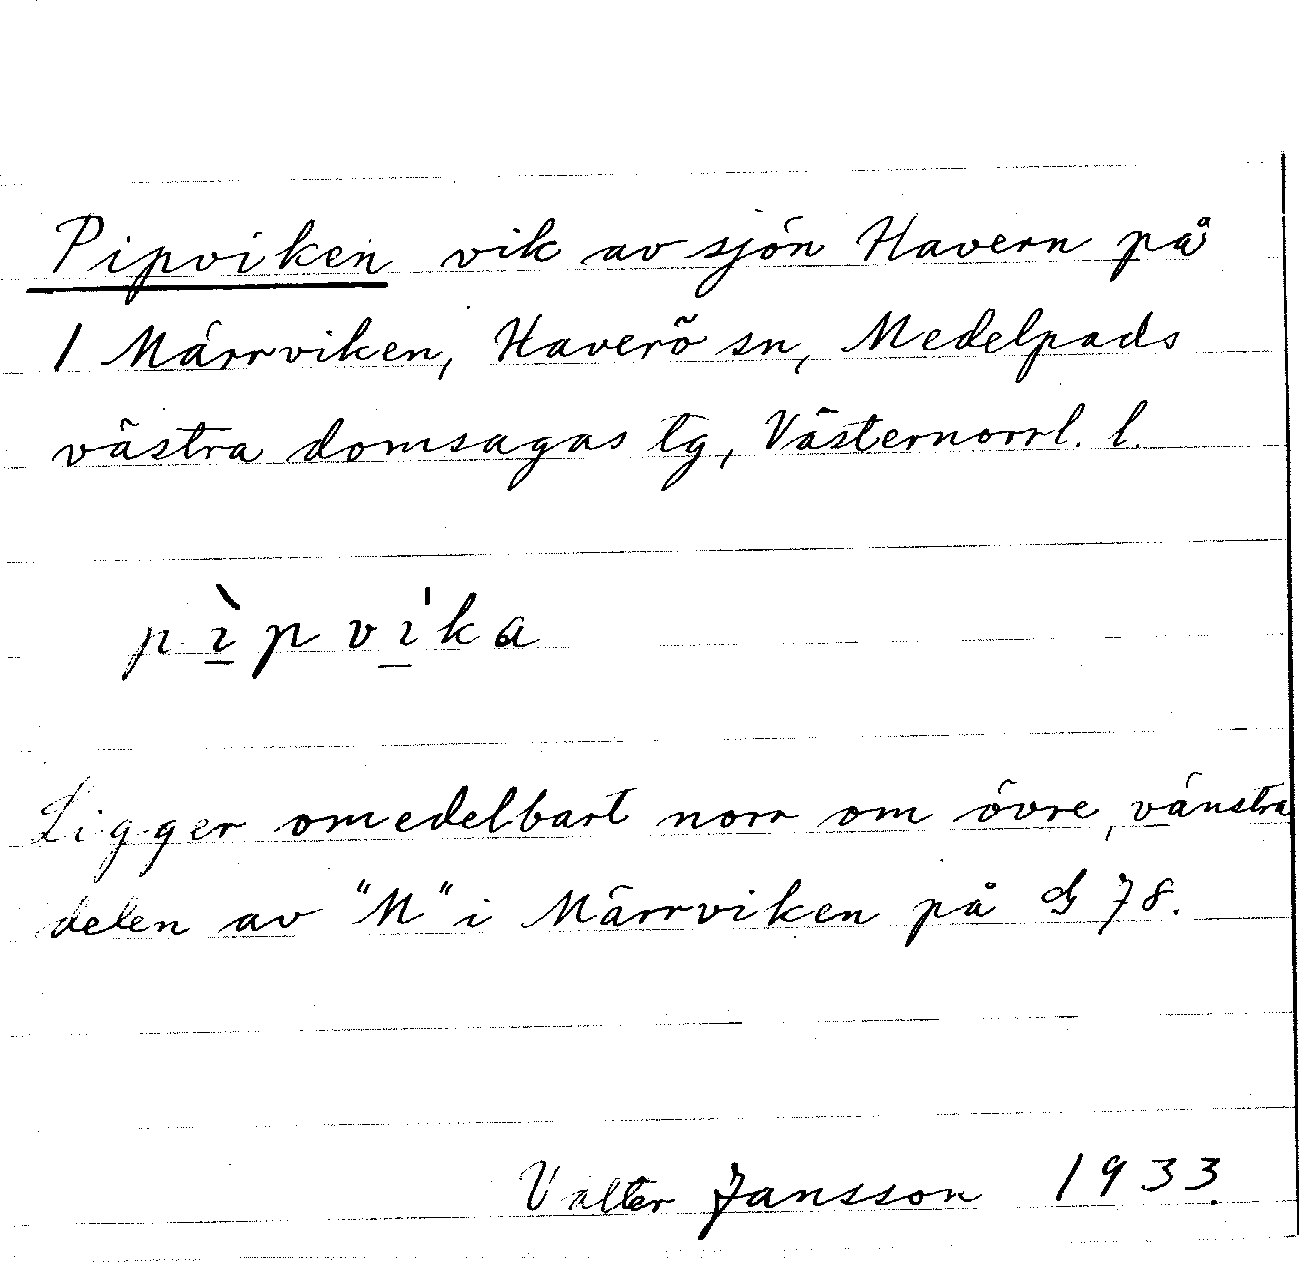 Pipviken vik av sjön Havern på
1 Märrviken, Haverö sn, Medelpads
västra domsagas tg, Västernorrl. l.
pı̲̀pvı̲̍ka
Ligger omedelbart norr om övre, vänstra
delen av "M" i Märrviken på G 78.
Valter Jansson 1933.